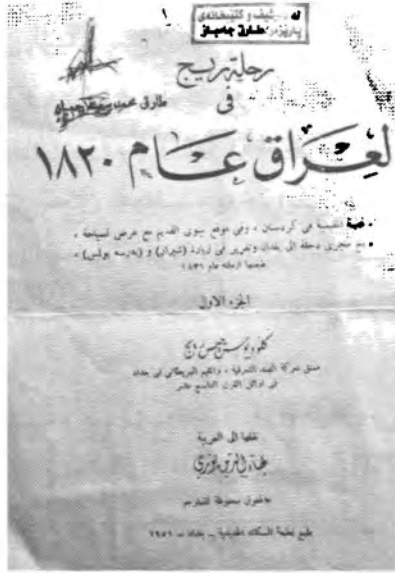 ئەرشیف و کتێبخانەی
پارێزەر طارق جامباز
رحلة ريج
في
لعراق عام ١٨٢٠
طارق
المقيمة في كردستان ، وفي موقع نينوى القديم مع عرض لسياحة
مجرى دجلة الى بغداد وتقرير عن لزيارة (شيراز) و (
عام ١٨٣٦
الجزء الاول
كلوديوس جيمس ريج
شركة الهند الشرقية ، والمقيم البريطاني في بغداد
في اوائل القرن التاسع عشر
نقلها الى العربية
بهاء الدين نوري
حقوق محفوظة للمترجم
طبع بمطبعة السكك الحديدية - بغداد - ١٩٥١